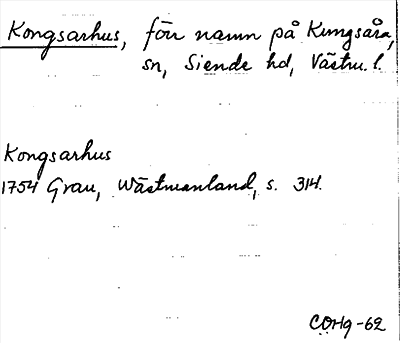 Kongsarhus, förr namn på Kungsåra,
sn, Siende hd, Västm. l.
Kongsarhus
1754 Grau, Wästmanland, s. 314.
COHg-62